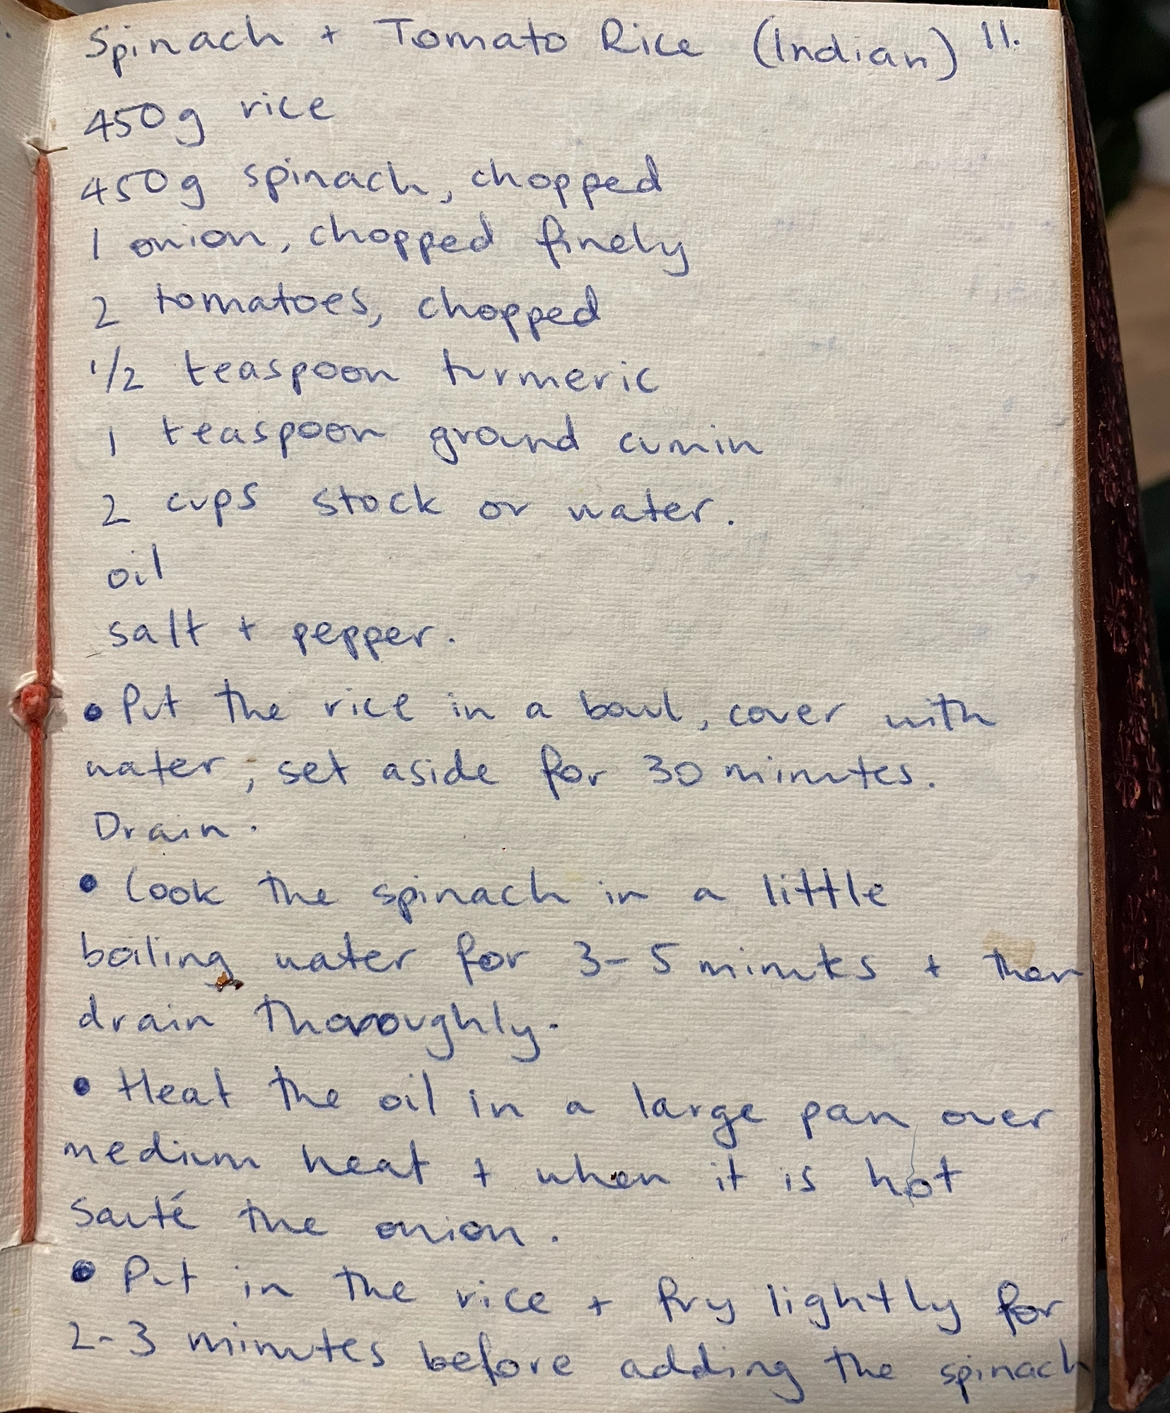 Spinach + Tomato Rice (Indian) 11.
450g rice
450g spinach, chopped
1 onion, chopped finely
2 tomatoes, chopped
1/2 teaspoon turmeric
1 teaspoon ground cumin
2 cups stock or water.
oil
salt + pepper.
• Put the rice in a bowl, cover with
water, set aside for 30 minutes.
Drain.
• Cook the spinach in a little
boiling water for 3-5 minutes + then
drain thoroughly.
• Heat the oil in a large pan over
medium heat + when it is hot
sauté the onion.
• Put in the rice + fry lightly for
2-3 minutes before adding the spinach